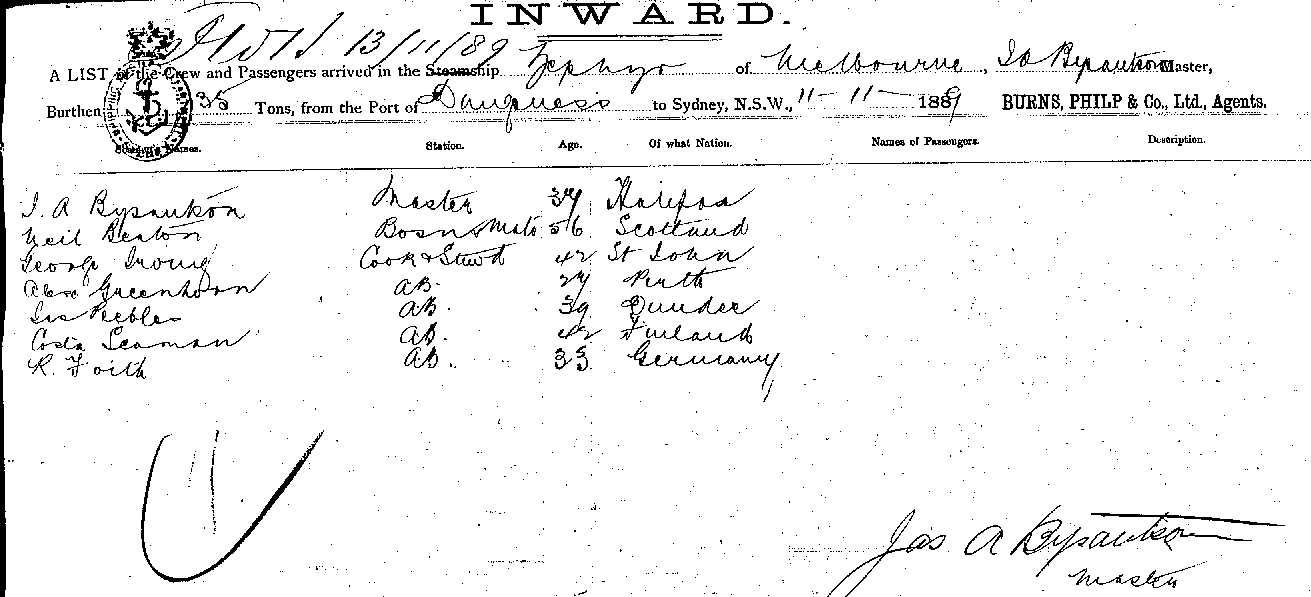 INWARD.
13/11/89
A LIST of the Crew and Passengers arrived in the Steamship Zephyr of Melbourne, Master,
Burthen 35 Tons, from the Port of to Sydney, N.S.W., 11-11-1889 BURNS, PHILP & Co., Ltd., Agents.
Names. Station. Age. Of what Nation. Names of Passengers. Description.
J. A Bysantson Master 37 Halifax
Neil Beaton Bosn & Mate 56 Scotland
George Irving Cook & Stewd 42 St John
Alex Greenhorn AB. 27 Perth
Jas Peebles AB. 39 Dundee
Costa Seaman AB. 42 Finland
R. Foith AB. 33 Germany
Jas A Bysantson
Master